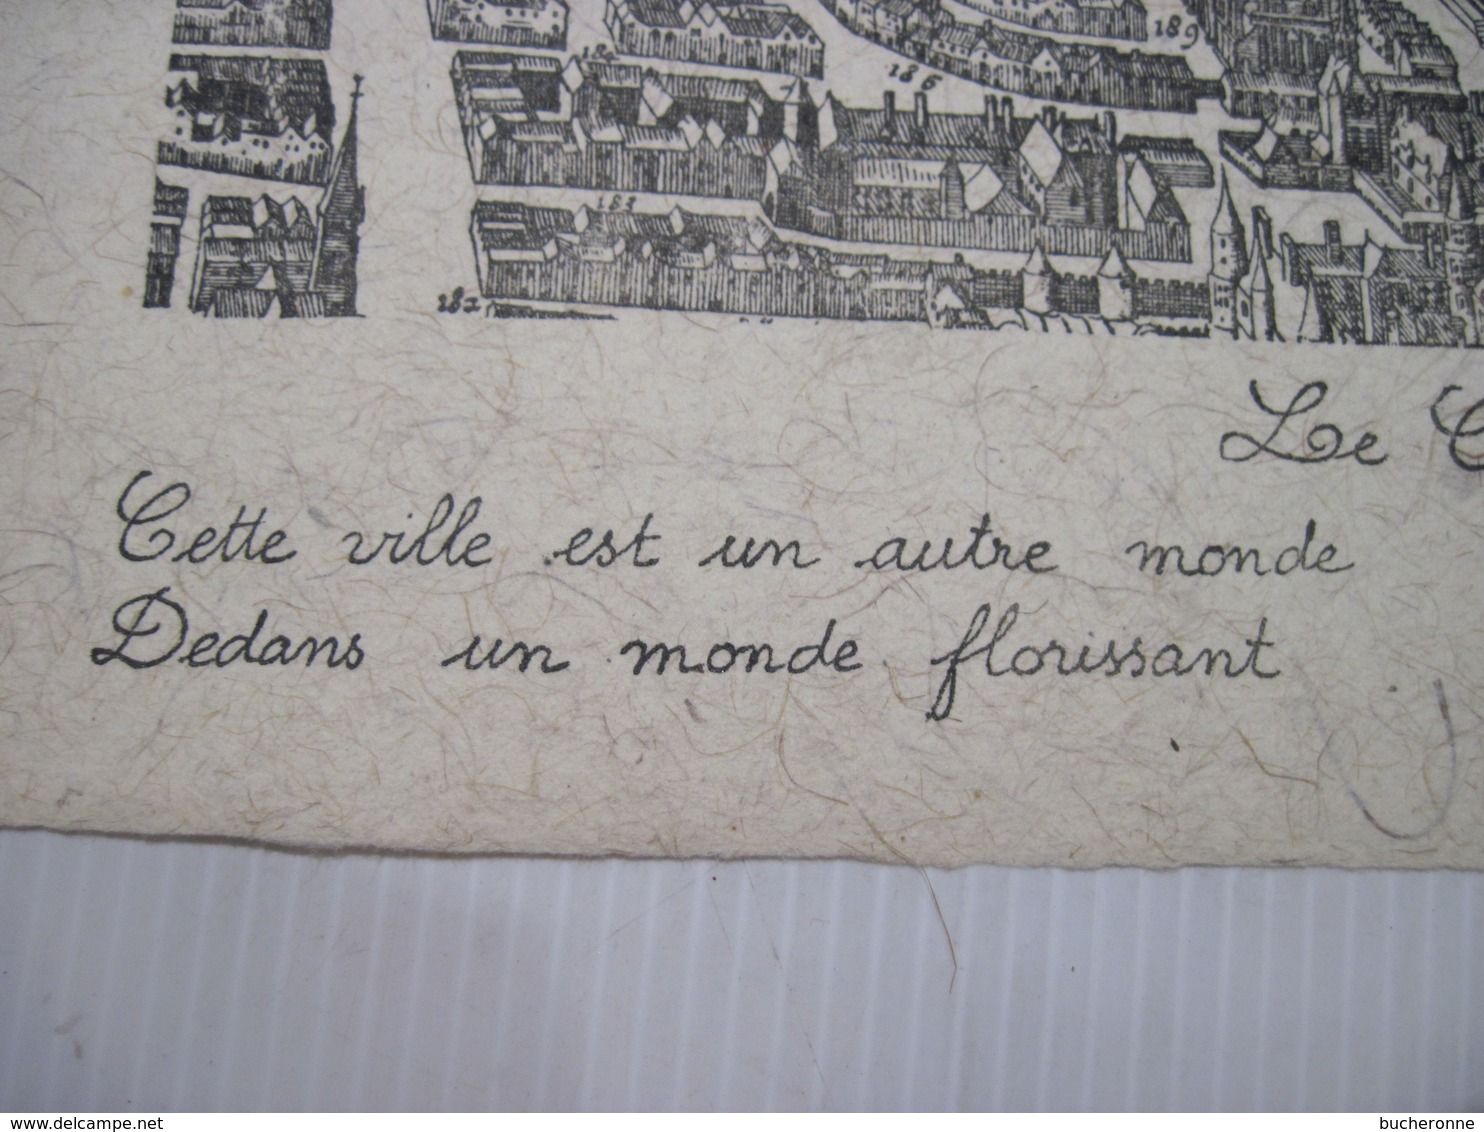 189
186
183
182
Le
Cette ville est un autre monde
Dedans un monde florissant
delcampe.net
bucheronne